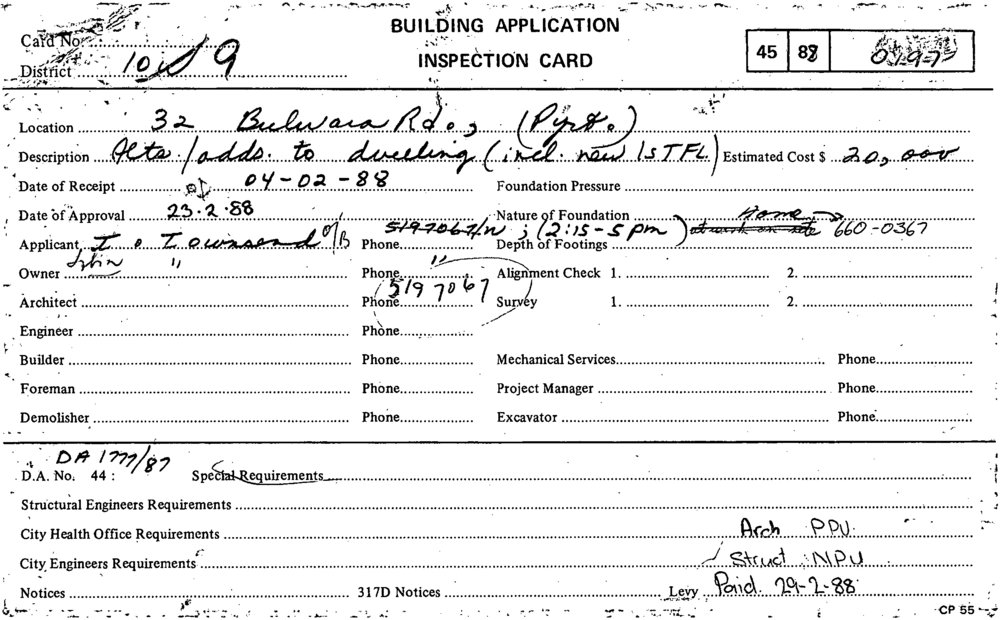 BUILDING APPLICATION
INSPECTION CARD
Card No.
District 10 9
45 88
Location 32 Bulwara Rd., (Pyrt.)
Description Alts/adds. to dwelling (incl. new 1ST FL) Estimated Cost $ 20,000
Date of Receipt 04-02-88 Foundation Pressure
Date of Approval 23.2.88 Nature of Foundation Home
Applicant I. Townsend O/B Phone 5197067/W ; (2:15-5pm) Depth of Footings 660-0367
Owner " Phone " Alignment Check 1. 2.
Architect Phone 519 7067 Survey 1. 2.
Engineer Phone
Builder Phone Mechanical Services Phone
Foreman Phone Project Manager Phone
Demolisher Phone Excavator Phone
DA 1777/87
D.A. No. 44: Special Requirements
Structural Engineers Requirements
City Health Office Requirements Arch PPU.
City Engineers Requirements Struct NPU
Notices 317D Notices Levy Paid. 29-2-88
CP 55